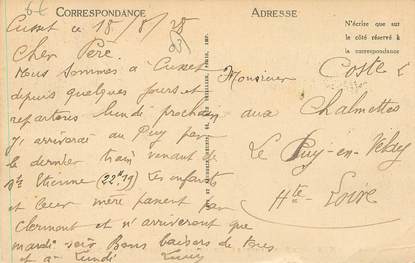 CORRESPONDANCE
Cusset ce 18/8/28
Cher Père.
Nous sommes à Cusset
depuis quelques jours et
repartons lundi prochain
j'y arriverai au Puy par
le dernier train venant de
St Etienne (22h19) Les enfants
et leur mère passent par
Clermont et n'arriveront que
mardi soir. Bons baisers de tous
et à Lundi Louis
ADRESSE
N'écrire que sur
le côté réservé à
la correspondance
Monsieur Coste
aux Chalmettes
Le Puy-en-Velay
Hte-Loire